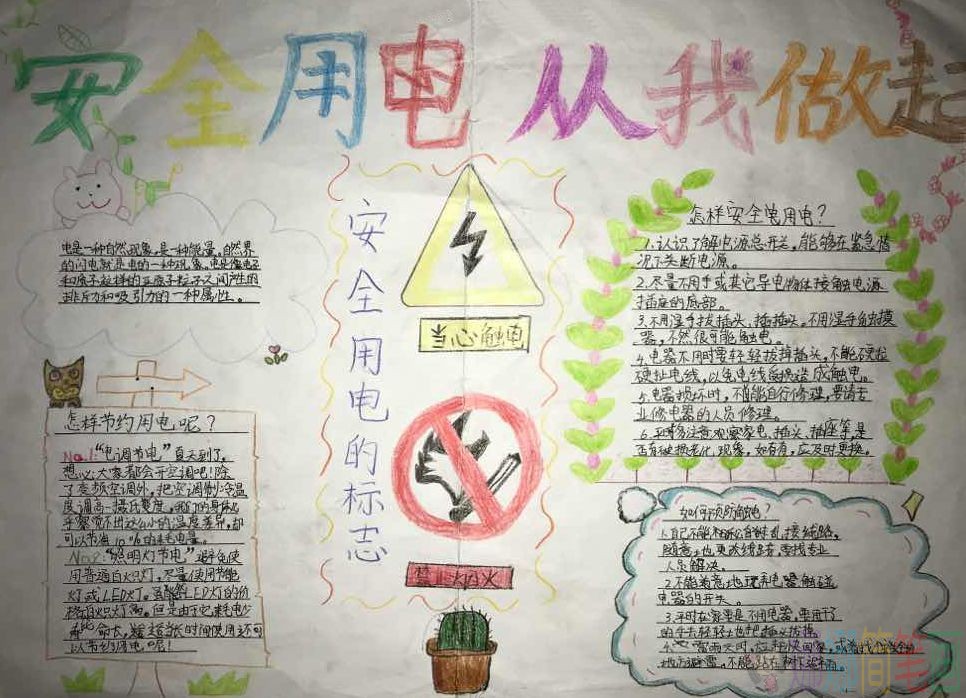 安全用电 从我做起
电是一种自然现象,是一种能量,自然界
的闪电就是电的一种现象。电是像电子
和质子这样的亚原子粒子之间产生的
排斥力和吸引力的一种属性。
怎样节约用电呢?
No.1“空调节电”夏天到了,
想必大家都会开空调吧!除
了变频空调外,把空调制冷温
度调高一摄氏度,我们的身体几
乎察觉不出这么小的温度差异,却
可以节省10%的耗电量。
No.2“照明灯节电”避免使
用普通白炽灯,尽量使用节能
灯或LED灯。虽然LED灯的价
格比白炽灯高,但是由于它耗电少
寿命长,
以节约用电呢!
安全用电的标志
当心触电
禁止烟火
怎样安全使用电?
1.认识了解电源总开关,能够在紧急情
况下关断电源。
2.尽量不用手或其它导电物体接触电源
插座的底部。
3.不用湿手拔插头、插插头,不用湿手触摸电
器,不然很可能触电。
4.电器不用时要轻轻拔掉插头,不能硬拉
硬扯电线,以免电线受损造成触电。
5.电器损坏时,不能自行修理,要请专
业修电器的人员修理。
6.平时多注意观察家电、插头、插座等是
否有破损老化现象,如有,应及时更换。
如何预防触电?
1.自己不能私自乱接线路,
随意
人员解决。
2.不能着意地玩弄电器触碰
电器的开关。
3.平时在家里是不用电器,要用干
的手去轻轻
4.雷雨天时,应赶快回家,或者找个安全的
地方避雷,不能站在树下避雨。